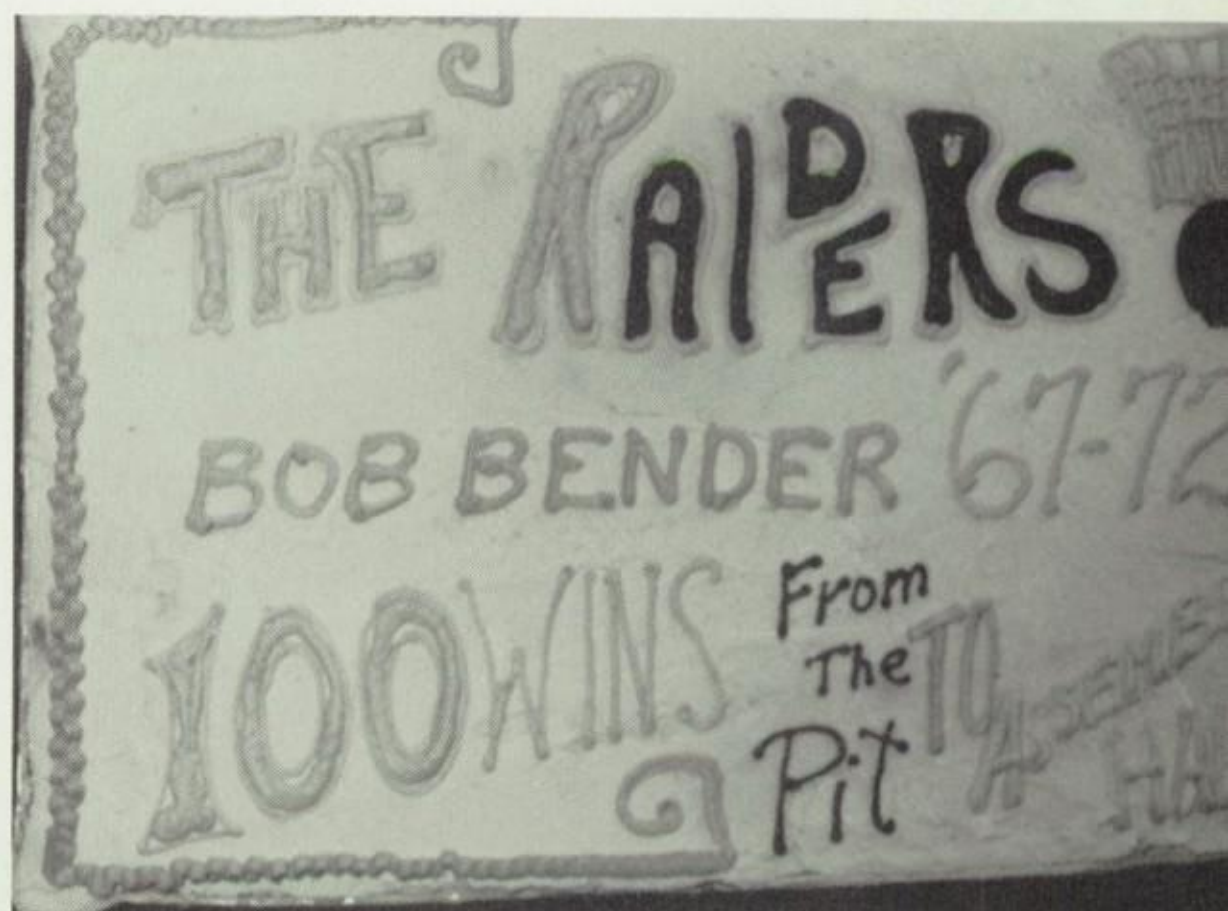 THE RAIDERS
BOB BENDER '67-72
100 WINS From
The TO
Pit A